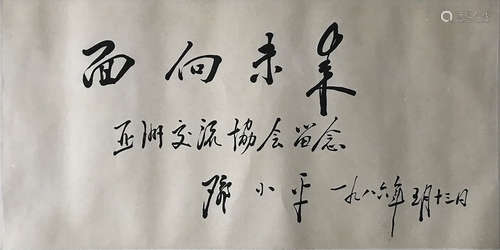 面向未来
亚洲交流協会留念
邓小平 一九八六年三月十三日